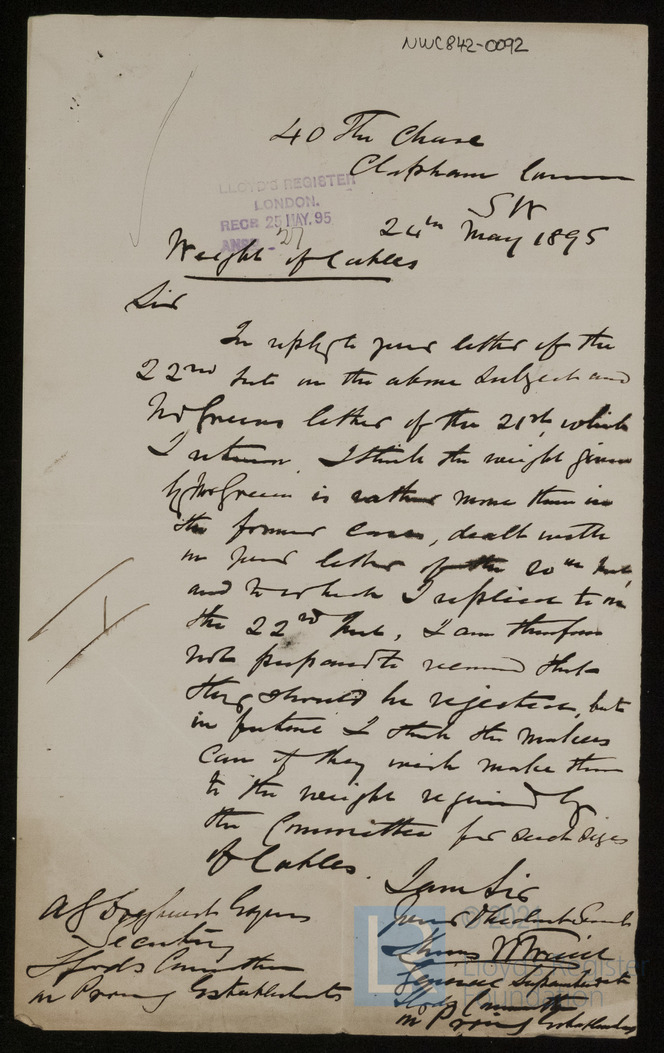 NWC842-0092
40 The Chase
Clapham Common
SW
24th May 1895
LLOYD'S REGISTER
LONDON.
RECD 25 MAY. 95
ANSD - 27
Weight of Cables
Sir
In reply to your letter of the
22nd Inst on the above subject and
Mr Greens letter of the 21st which
I return. I think the weight given
by Mr Green is rather more than in
the former cases, dealt with
in your letter of the 20th Inst
and to which I replied to on
the 22nd Inst, I am therefore
not prepared to recommend that
they should be rejected, but
in future I think the makers
can if they wish make them
to the weight required by
the Committee for such sizes
of Cables.
I am Sir
Your Obedient Servant
General Superintendent
Lloyds Committee
on Proving Establishments
Esquire
Secretary
Lloyds Committee
on Proving Establishments
© 2021
Lloyd's Register
Foundation